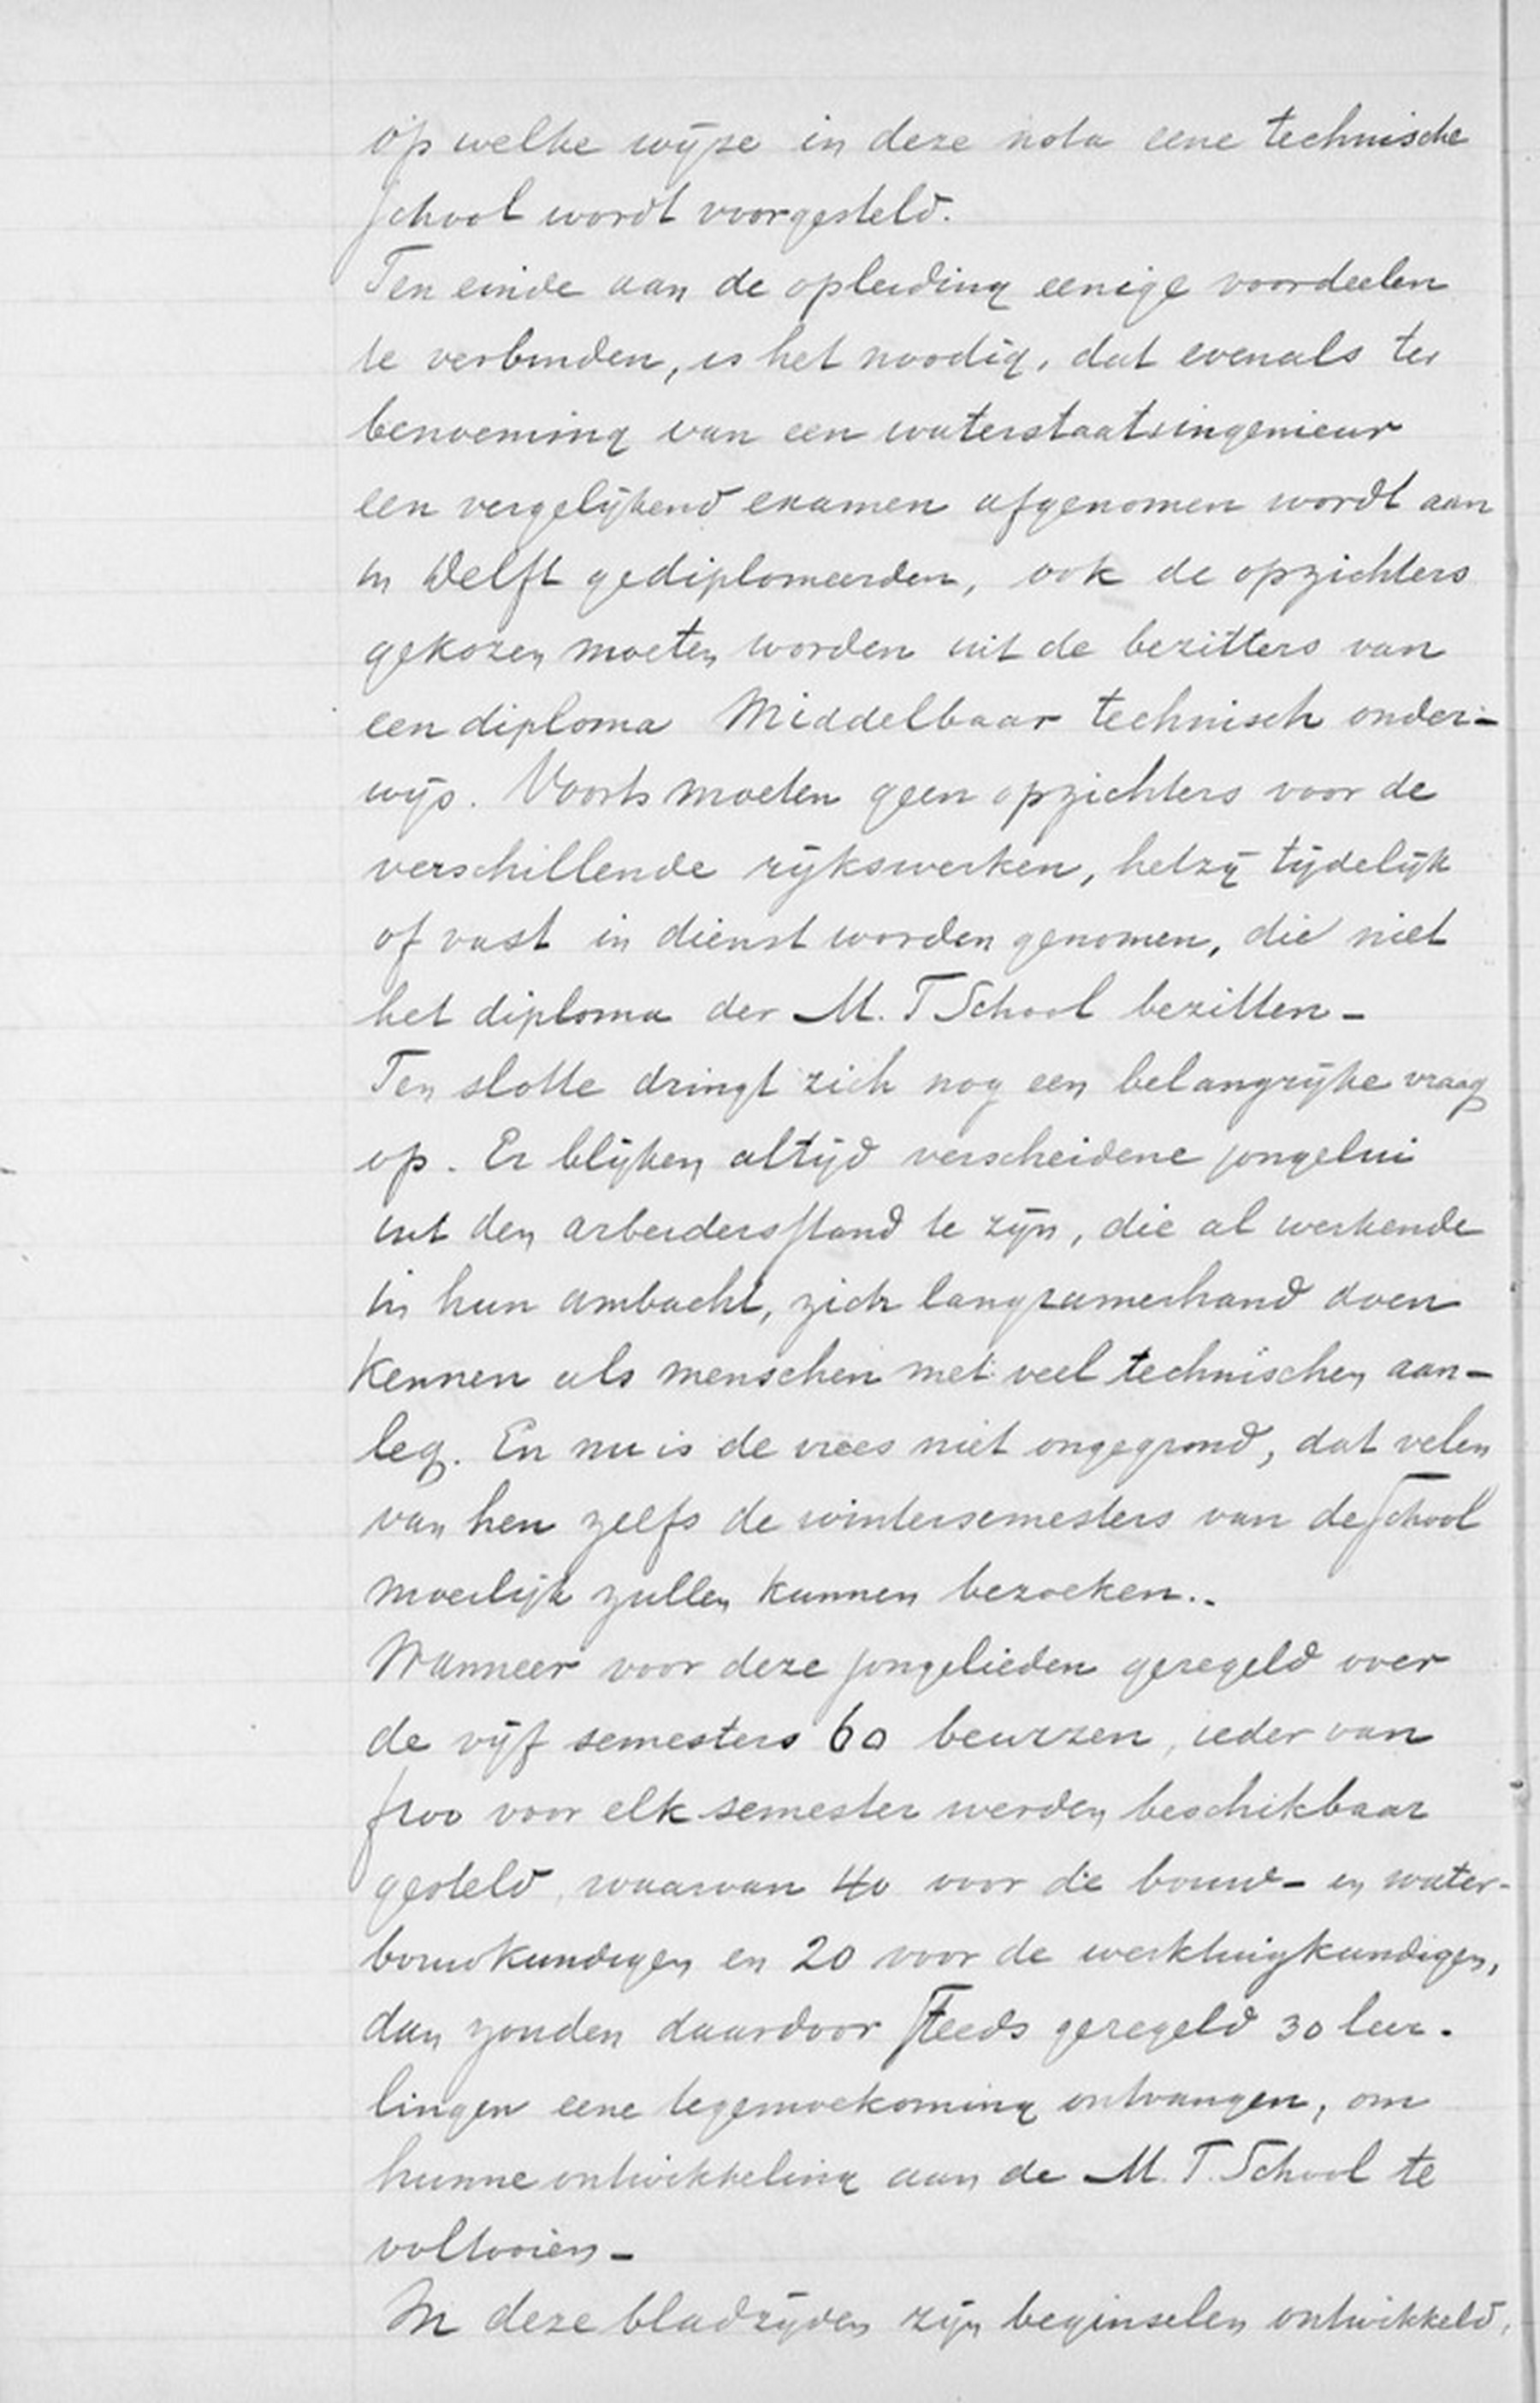 op welke wijze in deze nota eene technische
school wordt voorgesteld.
Ten einde aan de opleiding eenige voordeelen
te verbinden, is het noodig, dat evenals ter
benoeming van een waterstaatsingenieur
een vergelijkend examen afgenomen wordt aan
in Delft gediplomeerden, ook de opzichters
gekozen moeten worden uit de bezitters van
een diploma Middelbaar technisch onder-
wijs. Voorts moeten geen opzichters voor de
verschillende rijkswerken, hetzij tijdelijk
of vast in dienst worden genomen, die niet
het diploma der M. T School bezitten -
Ten slotte dringt zich nog een belangrijke vraag
op. Er blijken altijd verscheidene jongelui
uit den arbeidersstand te zijn, die al werkende
in hun ambacht, zich langzamerhand doen
kennen als menschen met veel technischen aan-
leg. En nu is de vrees niet ongegrond, dat velen
van hen zelfs de wintersemesters van de School
moeilijk zullen kunnen bezoeken..
Wanneer voor deze jongelieden geregeld over
de vijf semesters 60 beurzen, ieder van
f100 voor elk semester werden beschikbaar
gesteld, waarvan 40 voor de bouw- en water-
bouwkundigen en 20 voor de werktuigkundigen,
dan zouden daardoor steeds geregeld 30 leer-
lingen eene tegemoetkoming ontvangen, om
hunne ontwikkeling aan de M. T. School te
voltooien -
In deze bladzijden zijn beginselen ontwikkeld,